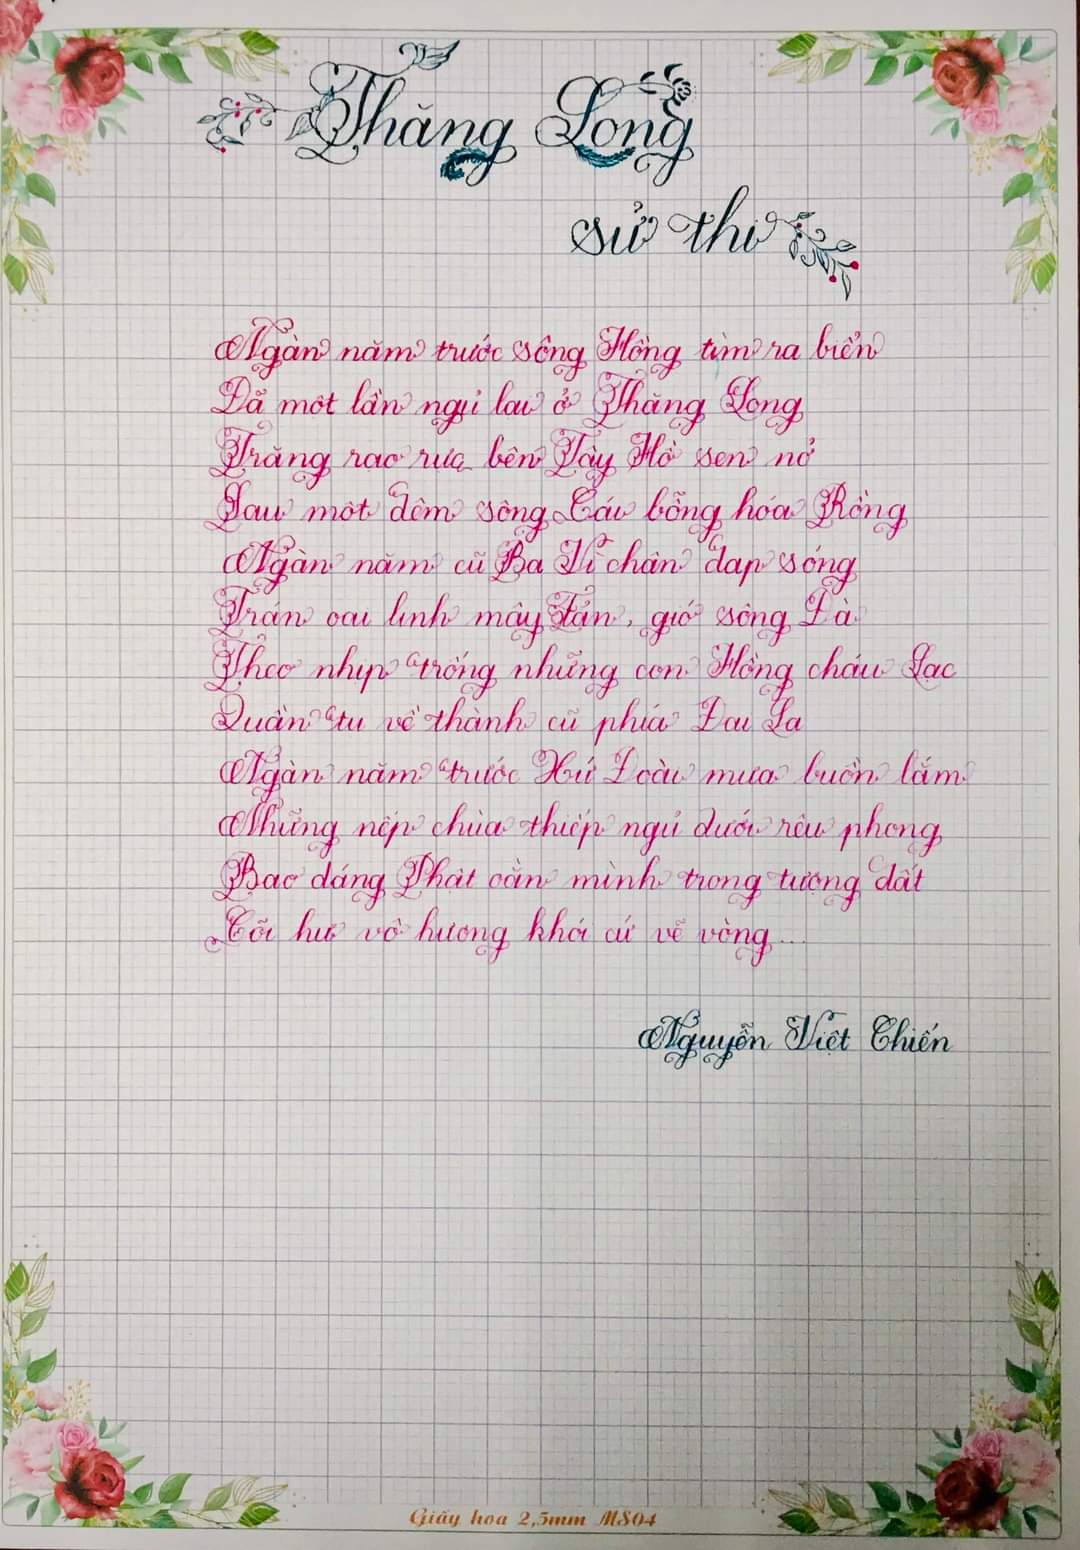 Thăng Long
sử thi
Ngàn năm trước sông Hồng tìm ra biển
Đã một lần ngụ lại ở Thăng Long
Trăng rạo rực bên Tây Hồ sen nở
Sau một đêm sông Cái bỗng hóa Rồng
Ngàn năm cũ Ba Vì chân đạp sóng
Trán oai linh mây Tản, gió sông Đà
Theo nhịp trống những con Hồng cháu Lạc
Quần tụ về thành cũ phía Đại La
Ngàn năm trước Xứ Đoài mưa buồn lắm
Những nếp chùa thiếp ngủ dưới rêu phong
Bao dáng Phật oằn mình trong tượng đất
Cõi hư vô hương khói cứ vẽ vòng...
Nguyễn Việt Chiến
Giấy hoa 2,5mm MS04